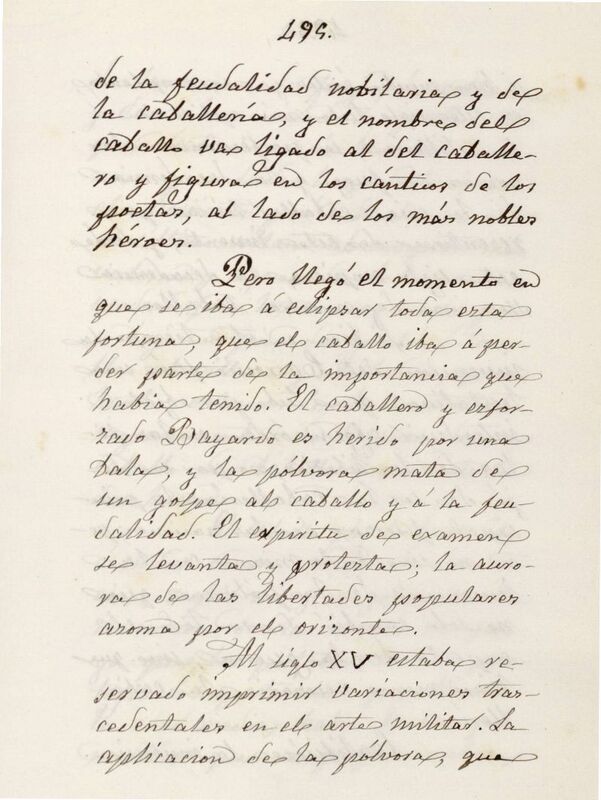 495.
de la feudalidad nobiliaria y de
la caballería, y el nombre del
caballo va ligado al del caballe-
ro y figura en los cánticos de los
poetas, al lado de los más nobles
héroes.
Pero llegó el momento en
que se iba á eclipsar toda esta
fortuna, que el caballo iba á per-
der parte de la importancia que
habia tenido. El caballero y esfor-
zado Bayardo es herido por una
bala, y la pólvora mata de
un golpe al caballo y á la feu-
dalidad. El espiritu de examen
se levanta y protesta; la auro-
ra de las libertades populares
asoma por el orizonte.
Al siglo XV estaba re-
servado imprimir variaciones tras-
cedentales en el arte militar. La
aplicacion de la pólvora, que